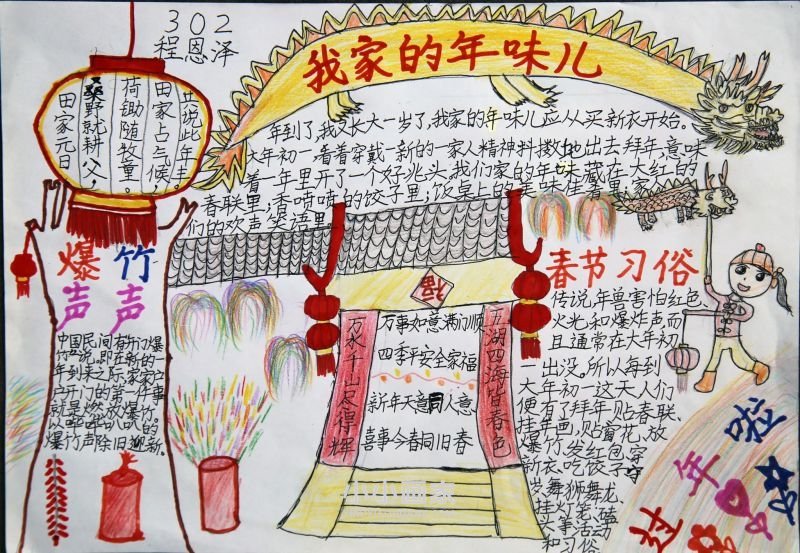 302
程恩泽
我家的年味儿
田家元日
桑野就耕父，
荷锄随牧童。
田家占气候，
共说此年丰。
年到了,我又长大一岁了,我家的年味儿应从买新衣开始。
大年初一看着穿戴一新的一家人精神抖擞地出去拜年,意味
着一年里开了一个好兆头,我们家的年味藏在大红的
春联里;香喷喷的饺子里;饭桌上的美味佳肴里;家人
们的欢声笑语里。
爆竹
声声
中国民间有"开门爆
竹"一说。即在新的一
年到来之际,家家户
户开门的第一件事
就是燃放爆竹。
爆竹声除旧迎新。
福
万水千山尽得辉
万事如意满门顺
四季平安全家福
新年天意同人意
喜事今春同旧春
五湖四海皆春色
春节习俗
传说,年兽害怕红色、
火光和爆炸声,而
且通常在大年初
一出没。所以每到
大年初一这天,人们
便有了拜年、贴春联、
挂年画,贴窗花、放
爆竹、发红包、穿
新衣、吃饺子、守
岁、舞狮舞龙、
挂灯笼、磕
头等活动
和习俗。
过年啦